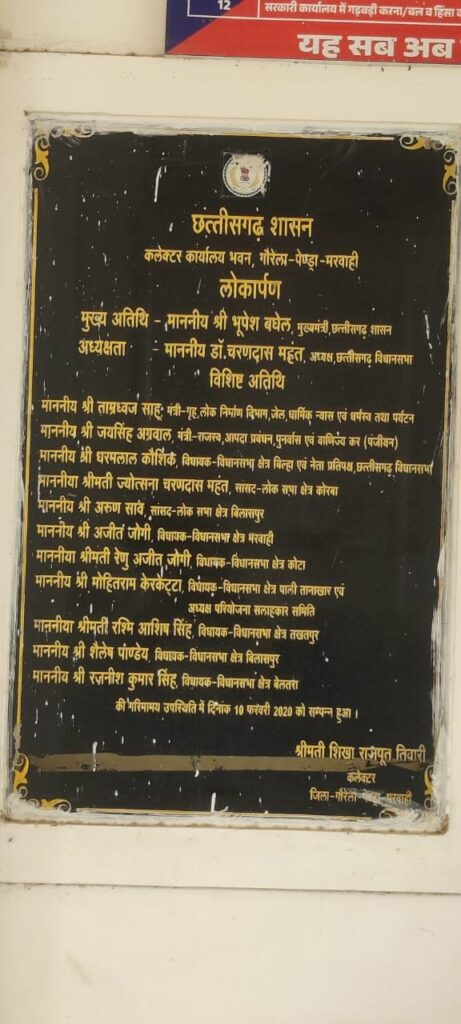 12
सरकारी कार्यालय में गड़बड़ी करना/बल व हिंसा
यह सब अब
छत्तीसगढ़ शासन
कलेक्टर कार्यालय भवन, गौरेला-पेण्ड्रा-मरवाही
लोकार्पण
मुख्य अतिथि - माननीय श्री भूपेश बघेल, मुख्यमंत्री, छत्तीसगढ़ शासन
अध्यक्षता - माननीय डॉ.चरणदास महंत, अध्यक्ष, छत्तीसगढ़ विधानसभा
विशिष्ट अतिथि
माननीय श्री ताम्रध्वज साहू, मंत्री-गृह, लोक निर्माण विभाग, जेल, धार्मिक न्यास एवं धर्मस्व तथा पर्यटन
माननीय श्री जयसिंह अग्रवाल, मंत्री-राजस्व, आपदा प्रबंधन, पुनर्वास एवं वाणिज्य कर (पंजीयन)
माननीय श्री धरमलाल कौशिक, विधायक-विधानसभा क्षेत्र बिल्हा एवं नेता प्रतिपक्ष, छत्तीसगढ़ विधानसभा
माननीया श्रीमती ज्योत्सना चरणदास महंत, सांसद-लोक सभा क्षेत्र कोरबा
माननीय श्री अरुण साव, सांसद-लोक सभा क्षेत्र बिलासपुर
माननीय श्री अजीत जोगी, विधायक-विधानसभा क्षेत्र मरवाही
माननीया श्रीमती रेणु अजीत जोगी, विधायक-विधानसभा क्षेत्र कोटा
माननीय श्री मोहितराम केरकेट्टा, विधायक-विधानसभा क्षेत्र पाली तानाखार एवं
अध्यक्ष परियोजना सलाहकार समिति
माननीया श्रीमती रश्मि आशिष सिंह, विधायक-विधानसभा क्षेत्र तखतपुर
माननीय श्री शैलेष पाण्डेय, विधायक-विधानसभा क्षेत्र बिलासपुर
माननीय श्री रजनीश कुमार सिंह, विधायक-विधानसभा क्षेत्र बेलतरा
की गरिमामय उपस्थिति में दिनांक 10 फरवरी 2020 को सम्पन्न हुआ ।
श्रीमती शिखा राजपूत तिवारी
कलेक्टर
जिला-गौरेला-पेण्ड्रा-मरवाही